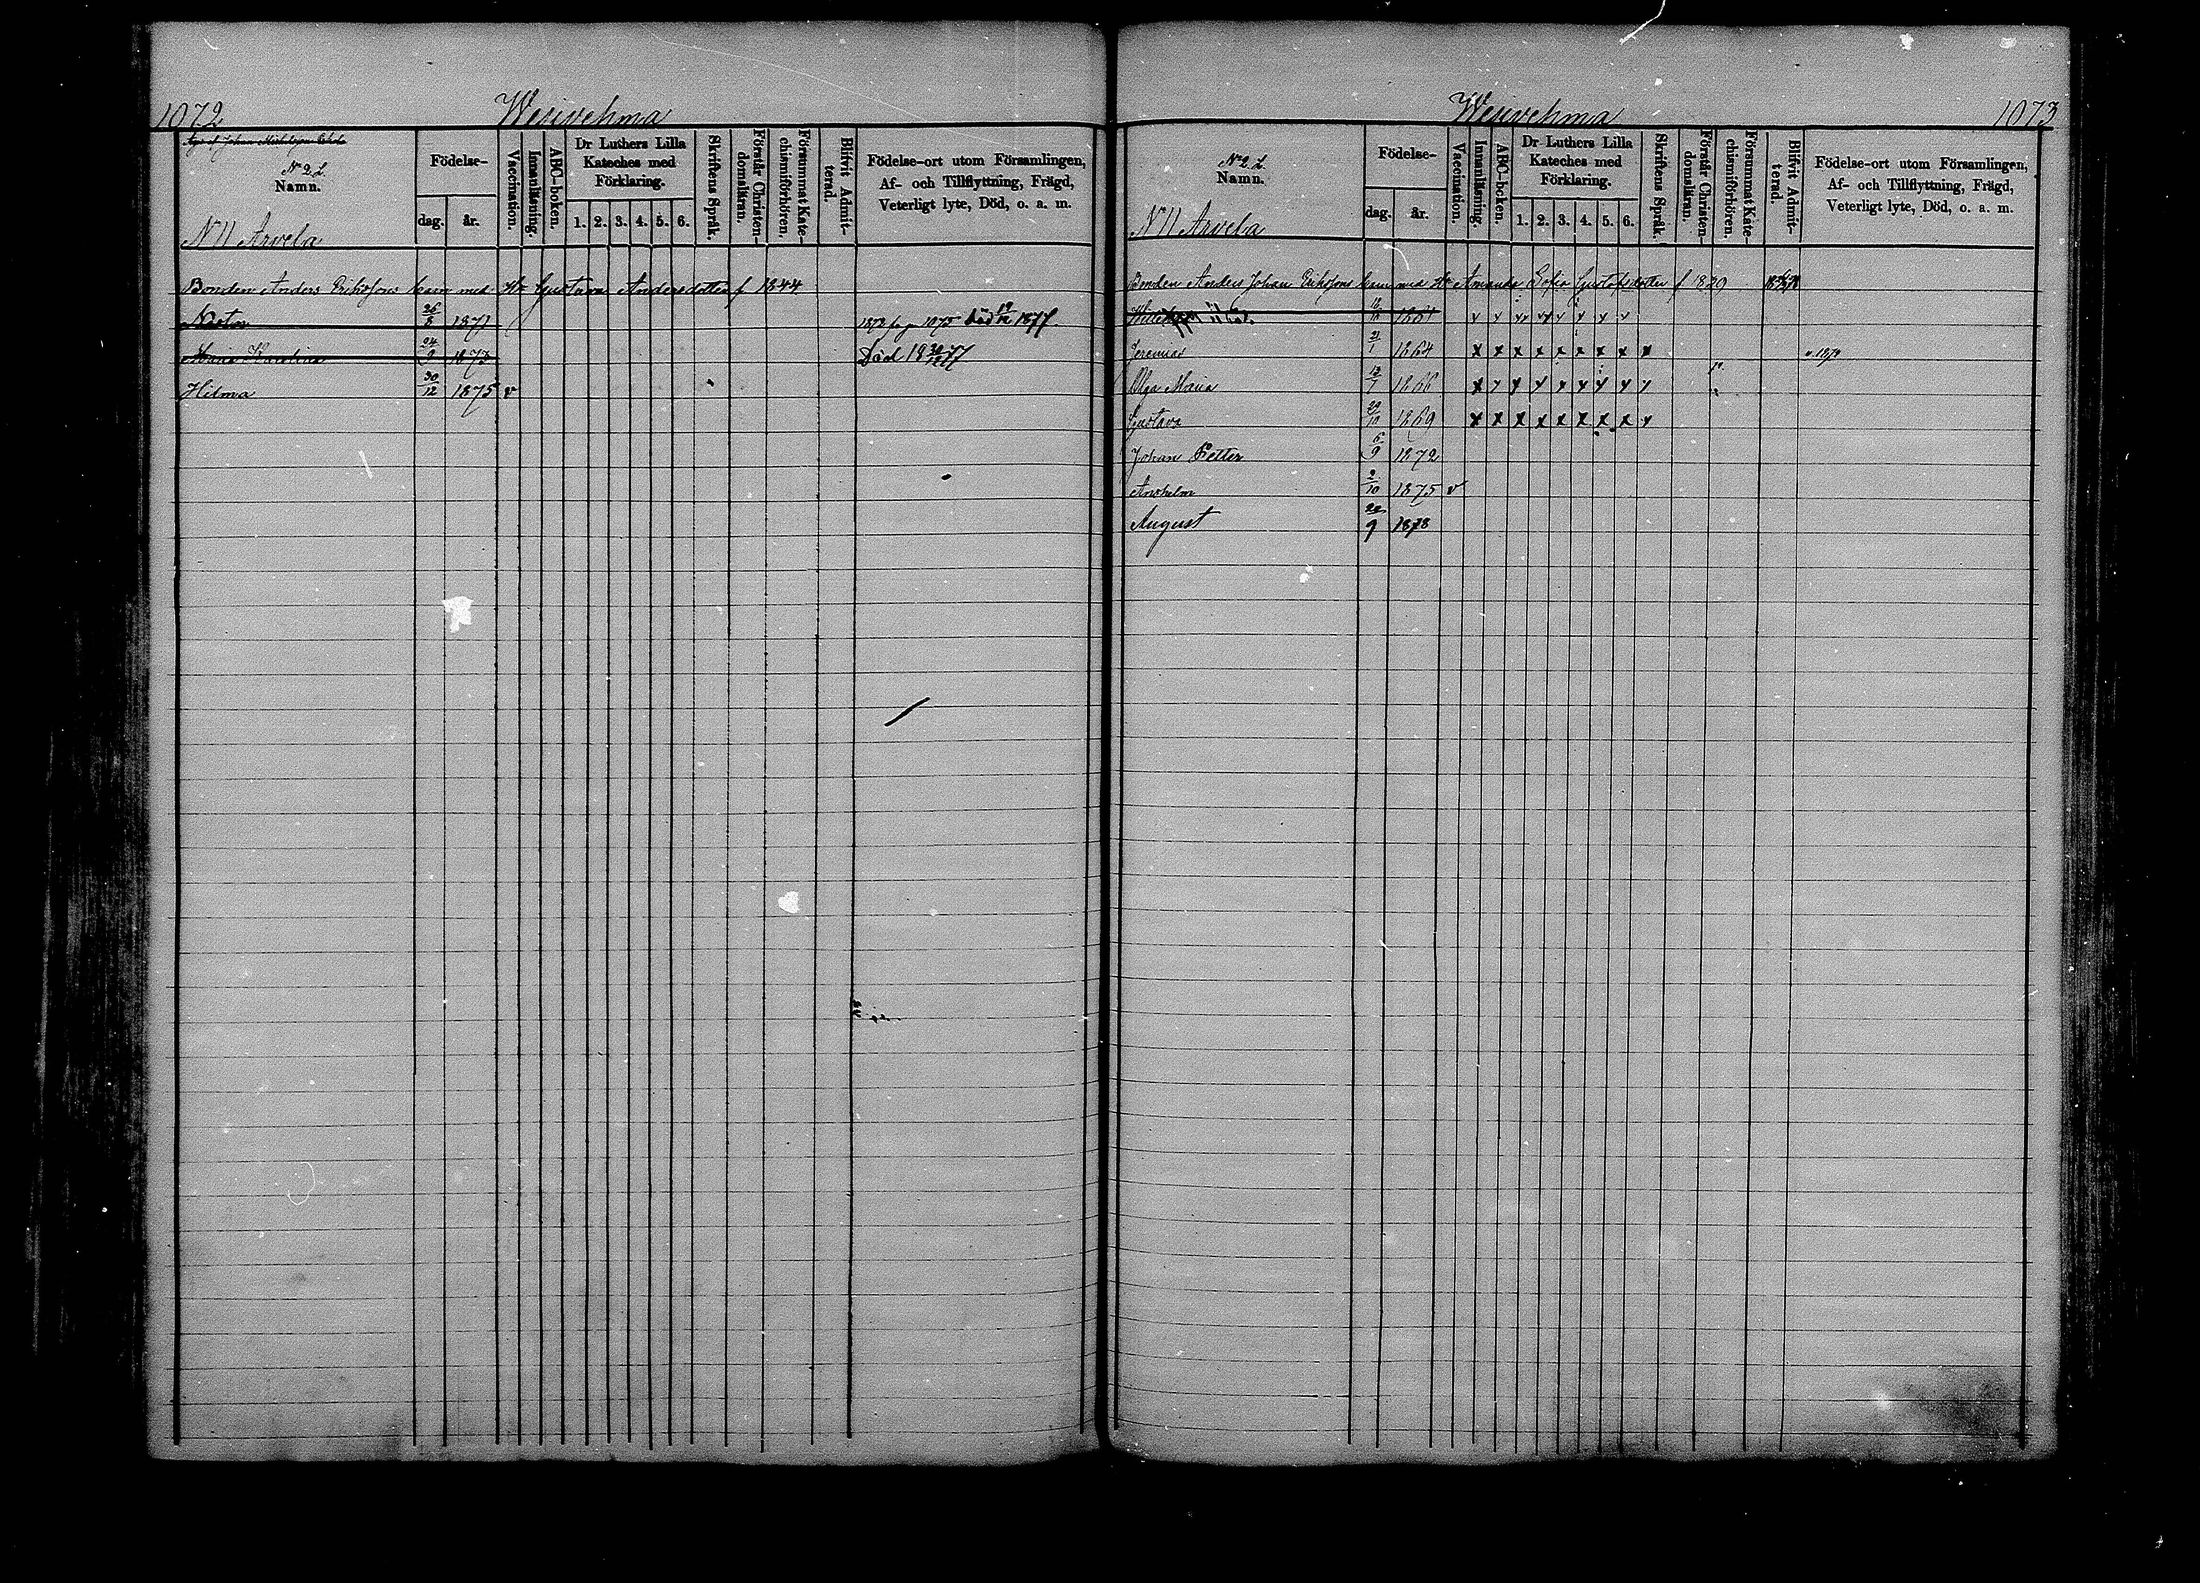 1072 Wesivehma
Äges af Johan
N 2 L.
Namn.
Födelse-
dag. år.
Vaccination.
Innanläsning.
ABC-boken.
Dr Luthers Lilla
Kateches med
Förklaring.
1. 2. 3. 4. 5. 6.
Skriftens Språk.
Förstår Christen-
domsläran.
Försummat Kate-
chismiförhören.
Blifvit Admit-
terad.
Födelse-ort utom Församlingen,
Af- och Tillflyttning, Frägd,
Veterligt lyte, Död, o. a. m.
N 11 Arvela
Bonden Anders Erikssons barn med H: Gustava Andersdotter f 1844
Nestor 26/8 1871 1873 pag 1075 död 19/12 1877.
Maria Karolina 24/9 1873 Död 18 77
Hilma 30/12 1875 v
Wesivehma 1073
N 2 L.
Namn.
Födelse-
dag. år.
Vaccination.
Innanläsning.
ABC-boken.
Dr Luthers Lilla
Kateches med
Förklaring.
1. 2. 3. 4. 5. 6.
Skriftens Språk.
Förstår Christen-
domsläran.
Försummat Kate-
chismiförhören.
Blifvit Admit-
terad.
Födelse-ort utom Församlingen,
Af- och Tillflyttning, Frägd,
Veterligt lyte, Död, o. a. m.
N 11 Arvela
Bonden Anders Johan Erikssons barn med H: Amanda Sofia Gustafsdotter f 1820
1861
Jeremias 21/1 1864 x x x x x x x x x
Olga Maria 13/7 1866 x x x x x x x x x
Gustava 29/10 1869 x x x x x x x x x
Johan Petter 6/9 1872
Anshelm 2/10 1875 v
August 22/9 1878